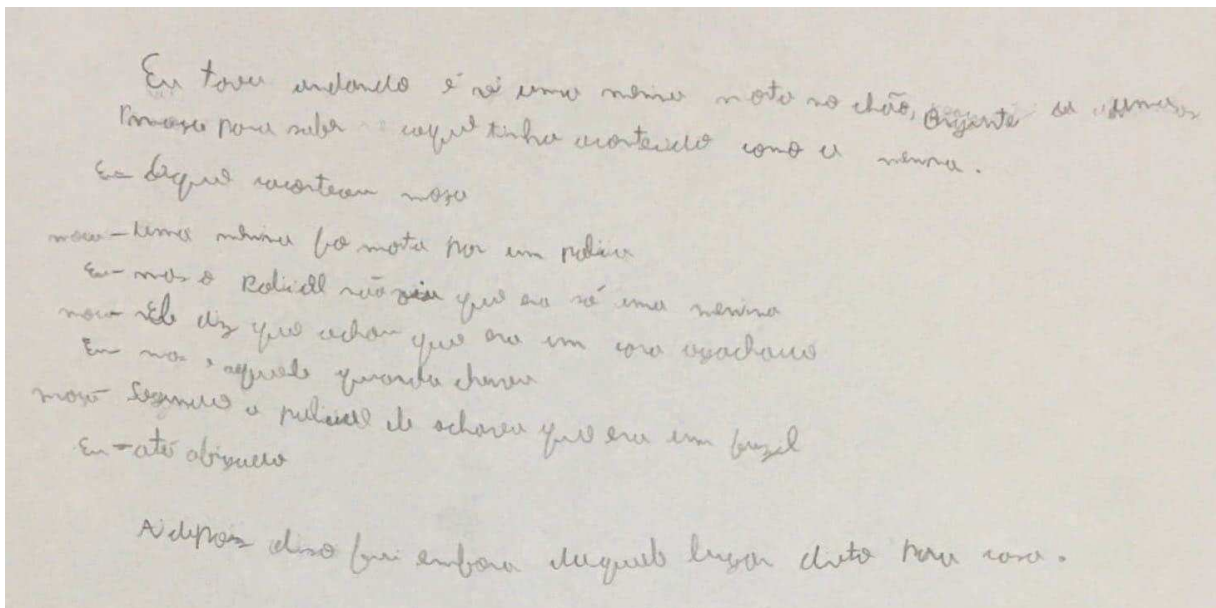 Eu tava andando é vi uma menina mota no chão,
para saber oque tinha acontecido como a menina.
Eu- Oque aconteceu mosa
mosa-Uma menina foi mota por um policia
Eu- mas o Policial não viu que era só uma menina
mosa- Ele diz que achou que era um cara
Eu- mas, aquele guarda chuva
mosa- Segundo o policial ele achava que era um fuzil
Eu-até obigado
Ai depois diso fui embora daquele lugar direto para casa.